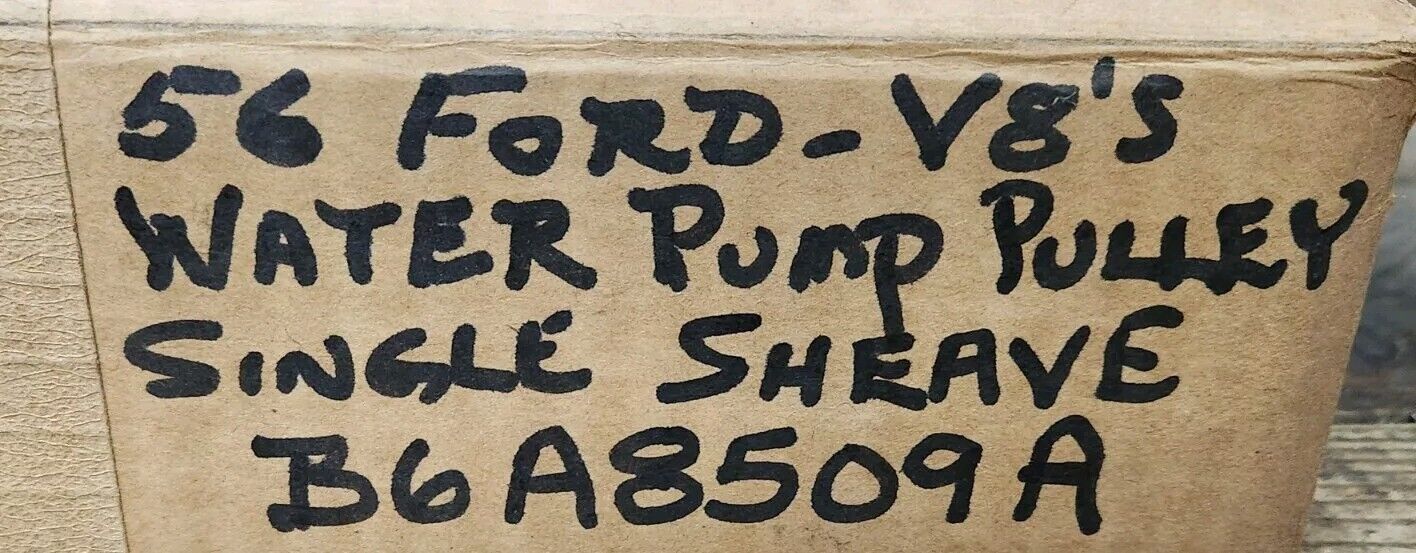 56 FORD-V8'S
WATER PUMP PULLEY
SINGLE SHEAVE
B6A8509A